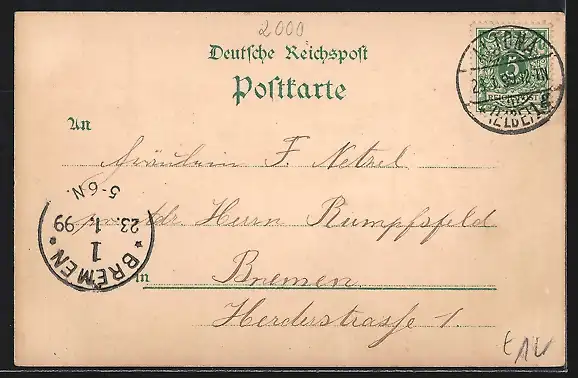 2000
Deutsche Reichspost
Postkarte
An
Fräulein F. Netzel
adr. Herrn Rumpfsfeld
in Bremen
Herderstrasse 1.
5-6 N.
23. 1. 99
1
* BREMEN *
ALTONA
5
(ELBE)